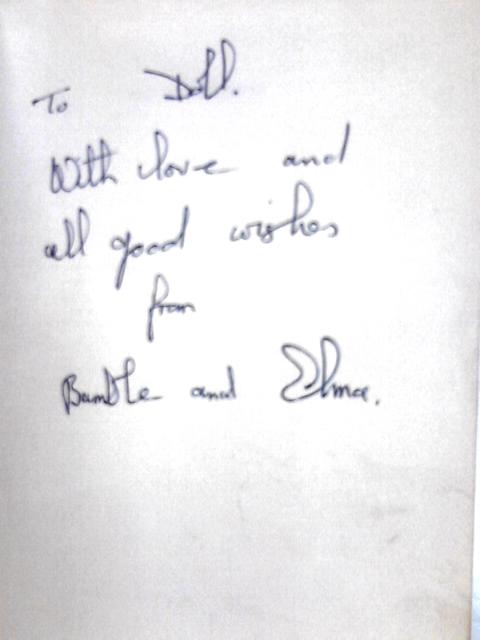 To Doll.
With love and
all good wishes
from
Bumble and Elma.